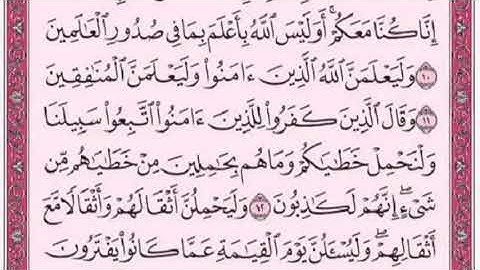 إِنَّا كُنَّا مَعَكُمْ ۚ أَوَلَيْسَ ٱللَّهُ بِأَعْلَمَ بِمَا فِى صُدُورِ ٱلْعَـٰلَمِينَ
١٠ وَلَيَعْلَمَنَّ ٱللَّهُ ٱلَّذِينَ ءَامَنُوا۟ وَلَيَعْلَمَنَّ ٱلْمُنَـٰفِقِينَ
١١ وَقَالَ ٱلَّذِينَ كَفَرُوا۟ لِلَّذِينَ ءَامَنُوا۟ ٱتَّبِعُوا۟ سَبِيلَنَا
وَلْنَحْمِلْ خَطَـٰيَـٰكُمْ وَمَا هُم بِحَـٰمِلِينَ مِنْ خَطَـٰيَـٰهُم مِّن
شَىْءٍ ۖ إِنَّهُمْ لَكَـٰذِبُونَ ١٢ وَلَيَحْمِلُنَّ أَثْقَالَهُمْ وَأَثْقَالًا مَّعَ
أَثْقَالِهِمْ ۖ وَلَيُسْـَٔلُنَّ يَوْمَ ٱلْقِيَـٰمَةِ عَمَّا كَانُوا۟ يَفْتَرُونَ